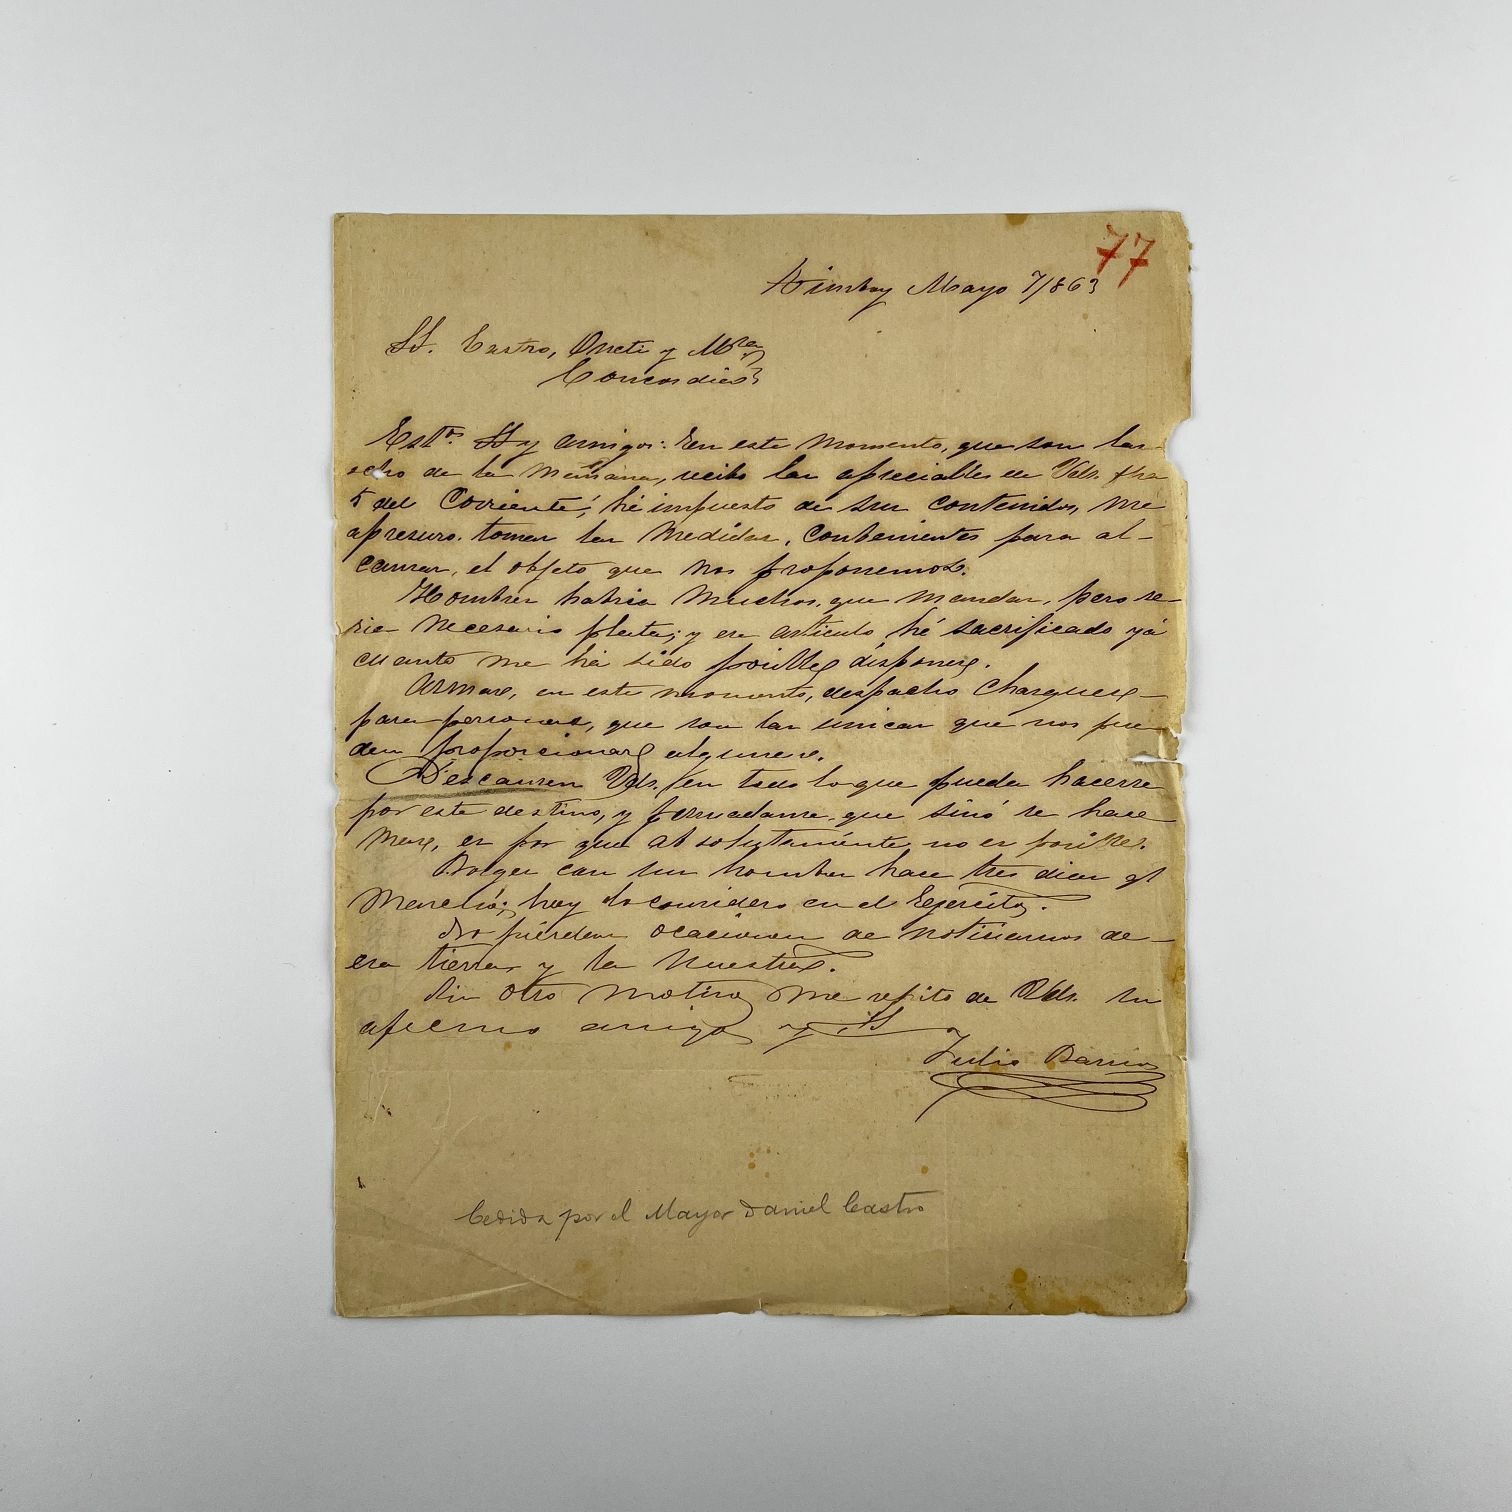 77
Mayo 7/863
SS. Castro, Oneti y
Concordia
Est.os SS y amigos: En este momento, que son las
ocho de la mañana, recibo las apreciables de Vds. fha
5 del Corriente; hé impuesto de sus contenidos, me
apresuro. tomar las medidas, conbenientes para al-
canzar, el objeto que nos proponemos.
Hombres habria muchos, que mandar, pero se-
ria necesario plata; y ese articulo, hé sacrificado yá
cuanto me há sido posible disponer.
Armas, en este momento, despacho chasques
para personas, que son las unicas que nos pue
den proporcionar algunas.
Descansen Vds. en todo lo que pueda hacerse
por este destino, y persuadanse, que sinó se hace
mas, es por que absolutaménte no es posible.
Borges con sus hombres hace tres dias qe
marchó; hoy lo considero en el Ejército.
No pierdan ocacion de noticiarnos de
esa tierra y la nuestra.
Sin otro motivo me repito de Vds. su
afecmo amigo y SS
Julio Barrios
Cedida por el Mayor Daniel Castro